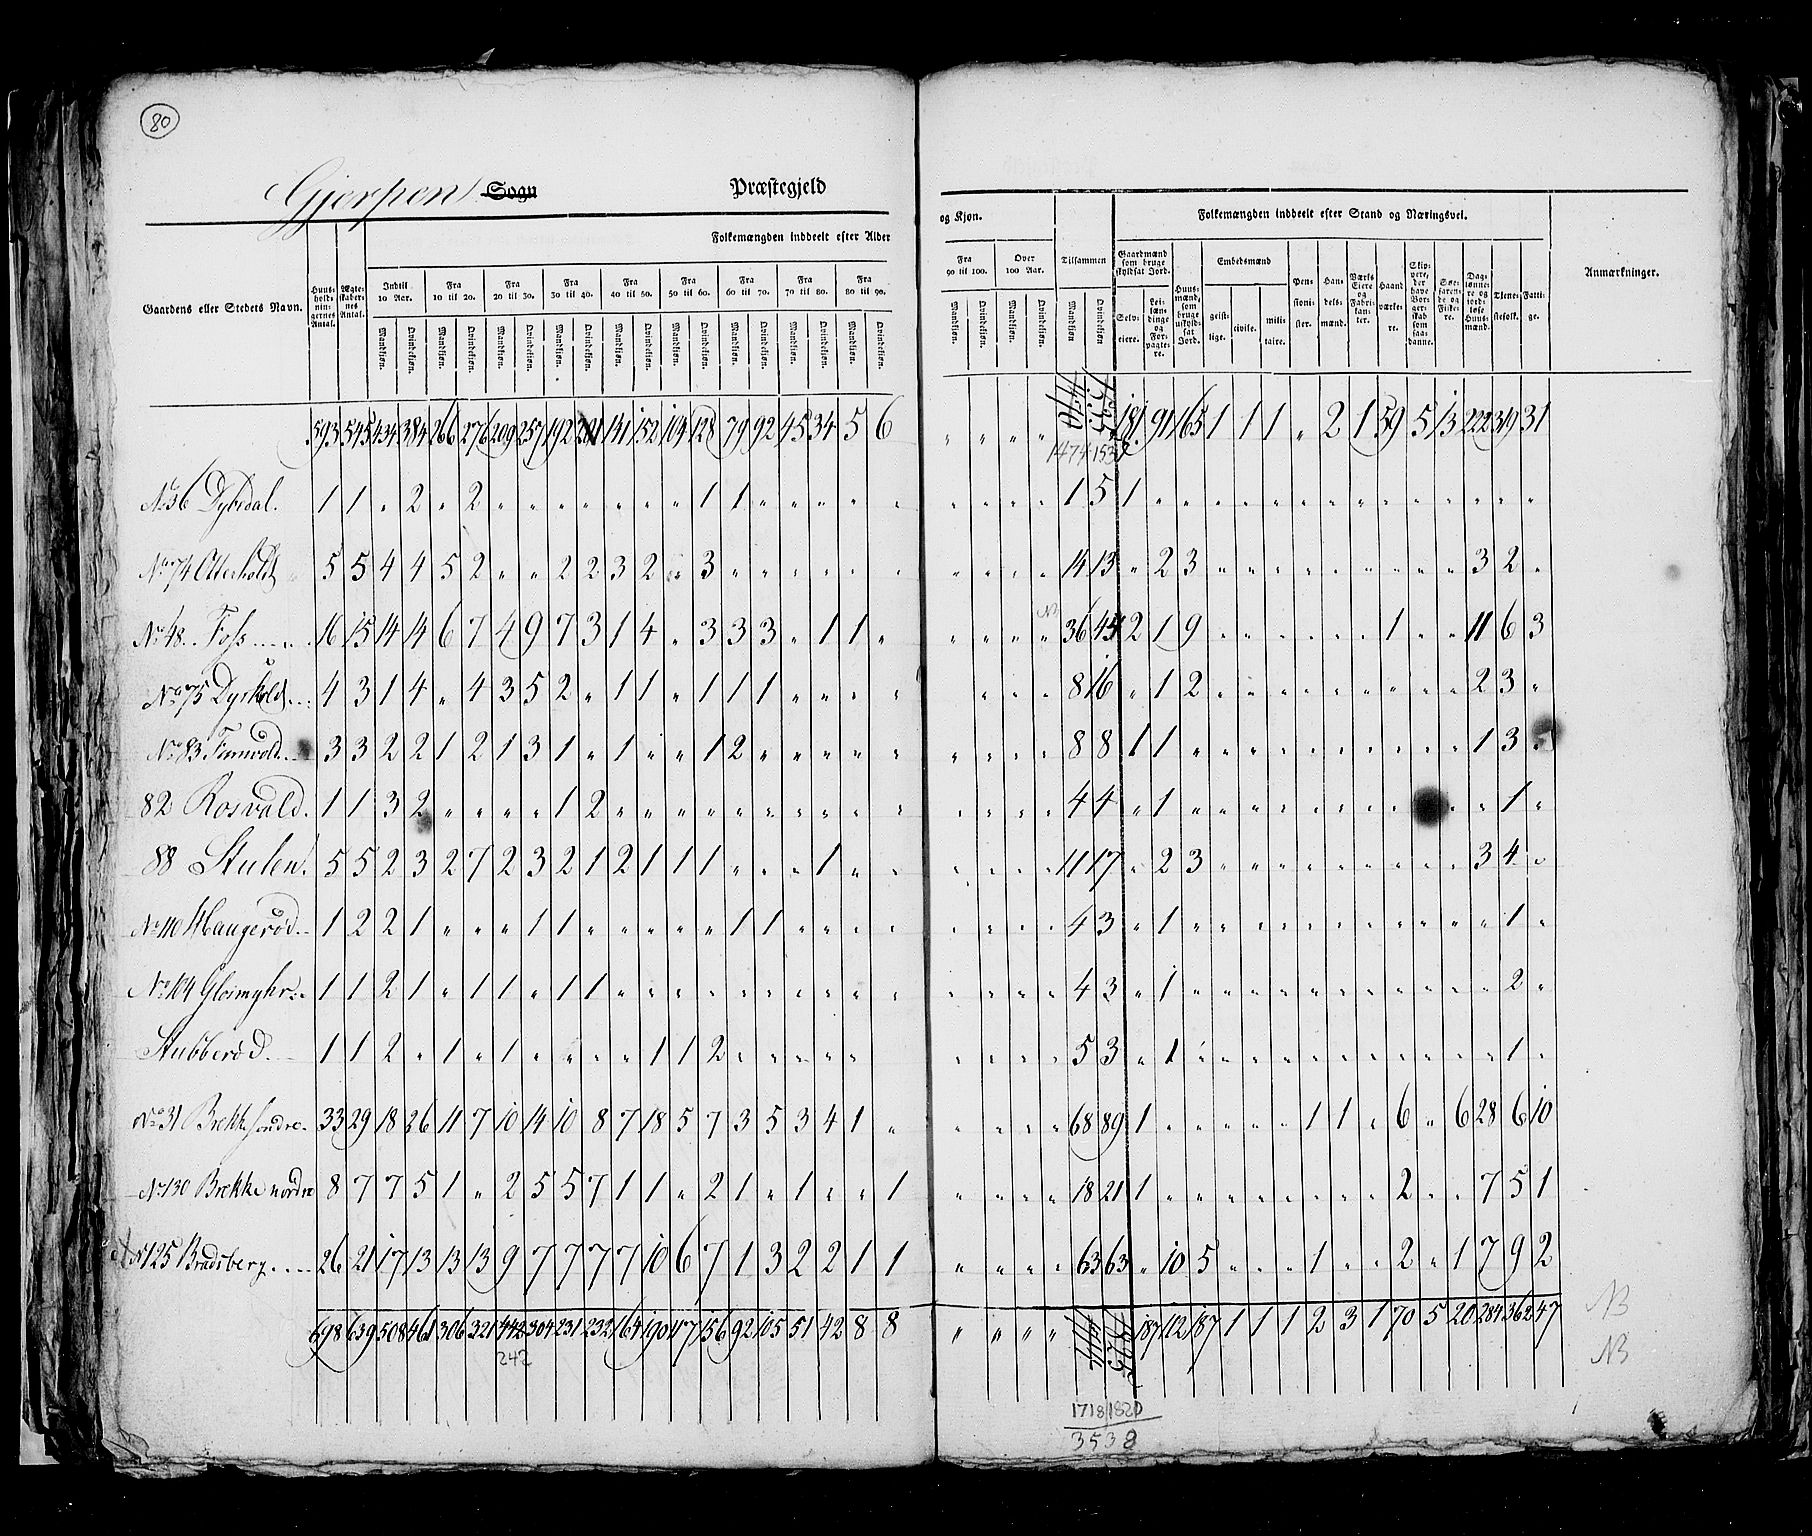 80
Gjerpen Sogn Præstegjeld
Gaardens eller Stedets Navn. Huusholdningernes Antal. Ægteskabernes Antal. Folkemængden inddeelt efter Alder og Kjøn. Tilsammen Folkemængden inddeelt efter Stand og Næringsvei. Anmærkninger.
Indtil 10 Aar. Fra 10 til 20. Fra 20 til 30. Fra 30 til 40. Fra 40 til 50. Fra 50 til 60. Fra 60 til 70. Fra 70 til 80. Fra 80 til 90. Fra 90 til 100. Over 100 Aar.
Mandkjøn. Qvindekjøn. Mandkjøn. Qvindekjøn. Mandkjøn. Qvindekjøn. Mandkjøn. Qvindekjøn. Mandkjøn. Qvindekjøn. Mandkjøn. Qvindekjøn. Mandkjøn. Qvindekjøn. Mandkjøn. Qvindekjøn. Mandkjøn. Qvindekjøn. Mandkjøn. Qvindekjøn. Mandkjøn. Qvindekjøn. Mandkjøn Qvindekjøn
Gaardmænd som bruge skyldsat Jord. Selveiere. Leilændinge og Forpagtere. Huusmænd, som bruge uskyldsat Jord. Embedsmænd geistlige. civile. militaire. Pensionister. Handelsmænd. Værks Eiere og Fabrikanter. Haandværkere. Skippere, der have Borgerskab som saadanne. Søefarende og Fiskere. Dagslønnere og jordløse Huusmænd. Tjenestefolk. Fattige.
593 545 434 384 266 276 209 257 192 201 141 152 104 128 79 92 45 34 5 6 " " " " 1474 1535 181 91 165 1 1 1 " 2 1 59 5 13 222 319 31
1474 1530
No 36 Dybedal. 1 1 " 2 " 2 " " " " " " " 1 1 " " " " " " " " " 1 5 1 " " " " " " " " " " " " " "
No 74 Otterholdt 5 5 4 4 5 2 " " 2 2 3 2 " 3 " " " " " " " " " " 14 13 " 2 3 " " " " " " " " " 3 2 "
No 48. Foss 16 15 14 14 6 7 4 9 7 3 1 4 " 3 3 3 " 1 1 " " " " " NB 36 45 2 1 9 " " " " " " 1 " " 11 6 3
No 75 Dyrkold 4 3 1 4 " 4 3 5 2 " 1 1 " 1 1 1 " " " " " " " " 8 16 " 1 2 " " " " " " " " " 2 3 "
No 83 Fannvold 3 3 2 2 1 2 1 3 1 " 1 " " 1 2 " " " " " " " " " 8 8 1 1 " " " " " " " " " " 1 3 "
82 Rosvald. 1 1 3 2 " " " " 1 2 " " " " " " " " " " " " " " 4 4 " 1 " " " " " " " " " " " 1 "
88 Stulen. 5 5 2 3 2 7 2 3 2 1 2 1 1 1 " " " 1 " " " " " " 11 17 " 2 3 " " " " " " " " " 3 4 "
No 110 Haugerød 1 2 2 1 " " " 1 1 " " " " " 1 1 " " " " " " " " 4 3 " 1 " " " " " " " " " " " 1 "
No 104 Gloimyhr 1 1 2 1 " 1 1 " 1 1 " " " " " " " " " " " " " " 4 3 " 1 " " " " " " " " " " " 2 "
Stubberød. 1 1 2 " 1 " 1 " " " " 1 1 2 " " " " " " " " " 5 3 " 1 " " " " " " " " " " " 1 "
No 31 Brekke søndre. 33 29 18 26 11 7 10 14 10 8 7 18 5 7 3 5 3 4 1 " " " " " 68 89 1 " " " " " " 1 1 " 6 " 6 28 6 10
No 130 Brekke nordre 8 7 7 5 1 " 2 5 5 7 1 1 " 2 1 " 1 " " 1 " " " " 18 21 1 " " " " " " " " 2 " " 7 5 1
No 125 Bradsberg 26 21 17 13 13 13 9 7 7 7 7 10 6 7 1 3 2 2 1 1 " " " " 63 63 " 10 5 " " " 1 " " 2 " 1 7 9 2
698 639 508 461 306 321 442 304 231 232 164 190 117 156 92 105 51 42 8 8 " " " " 187 112 187 1 1 1 2 3 1 70 5 20 284 362 47 NB
242
NB
1718 1820
3538